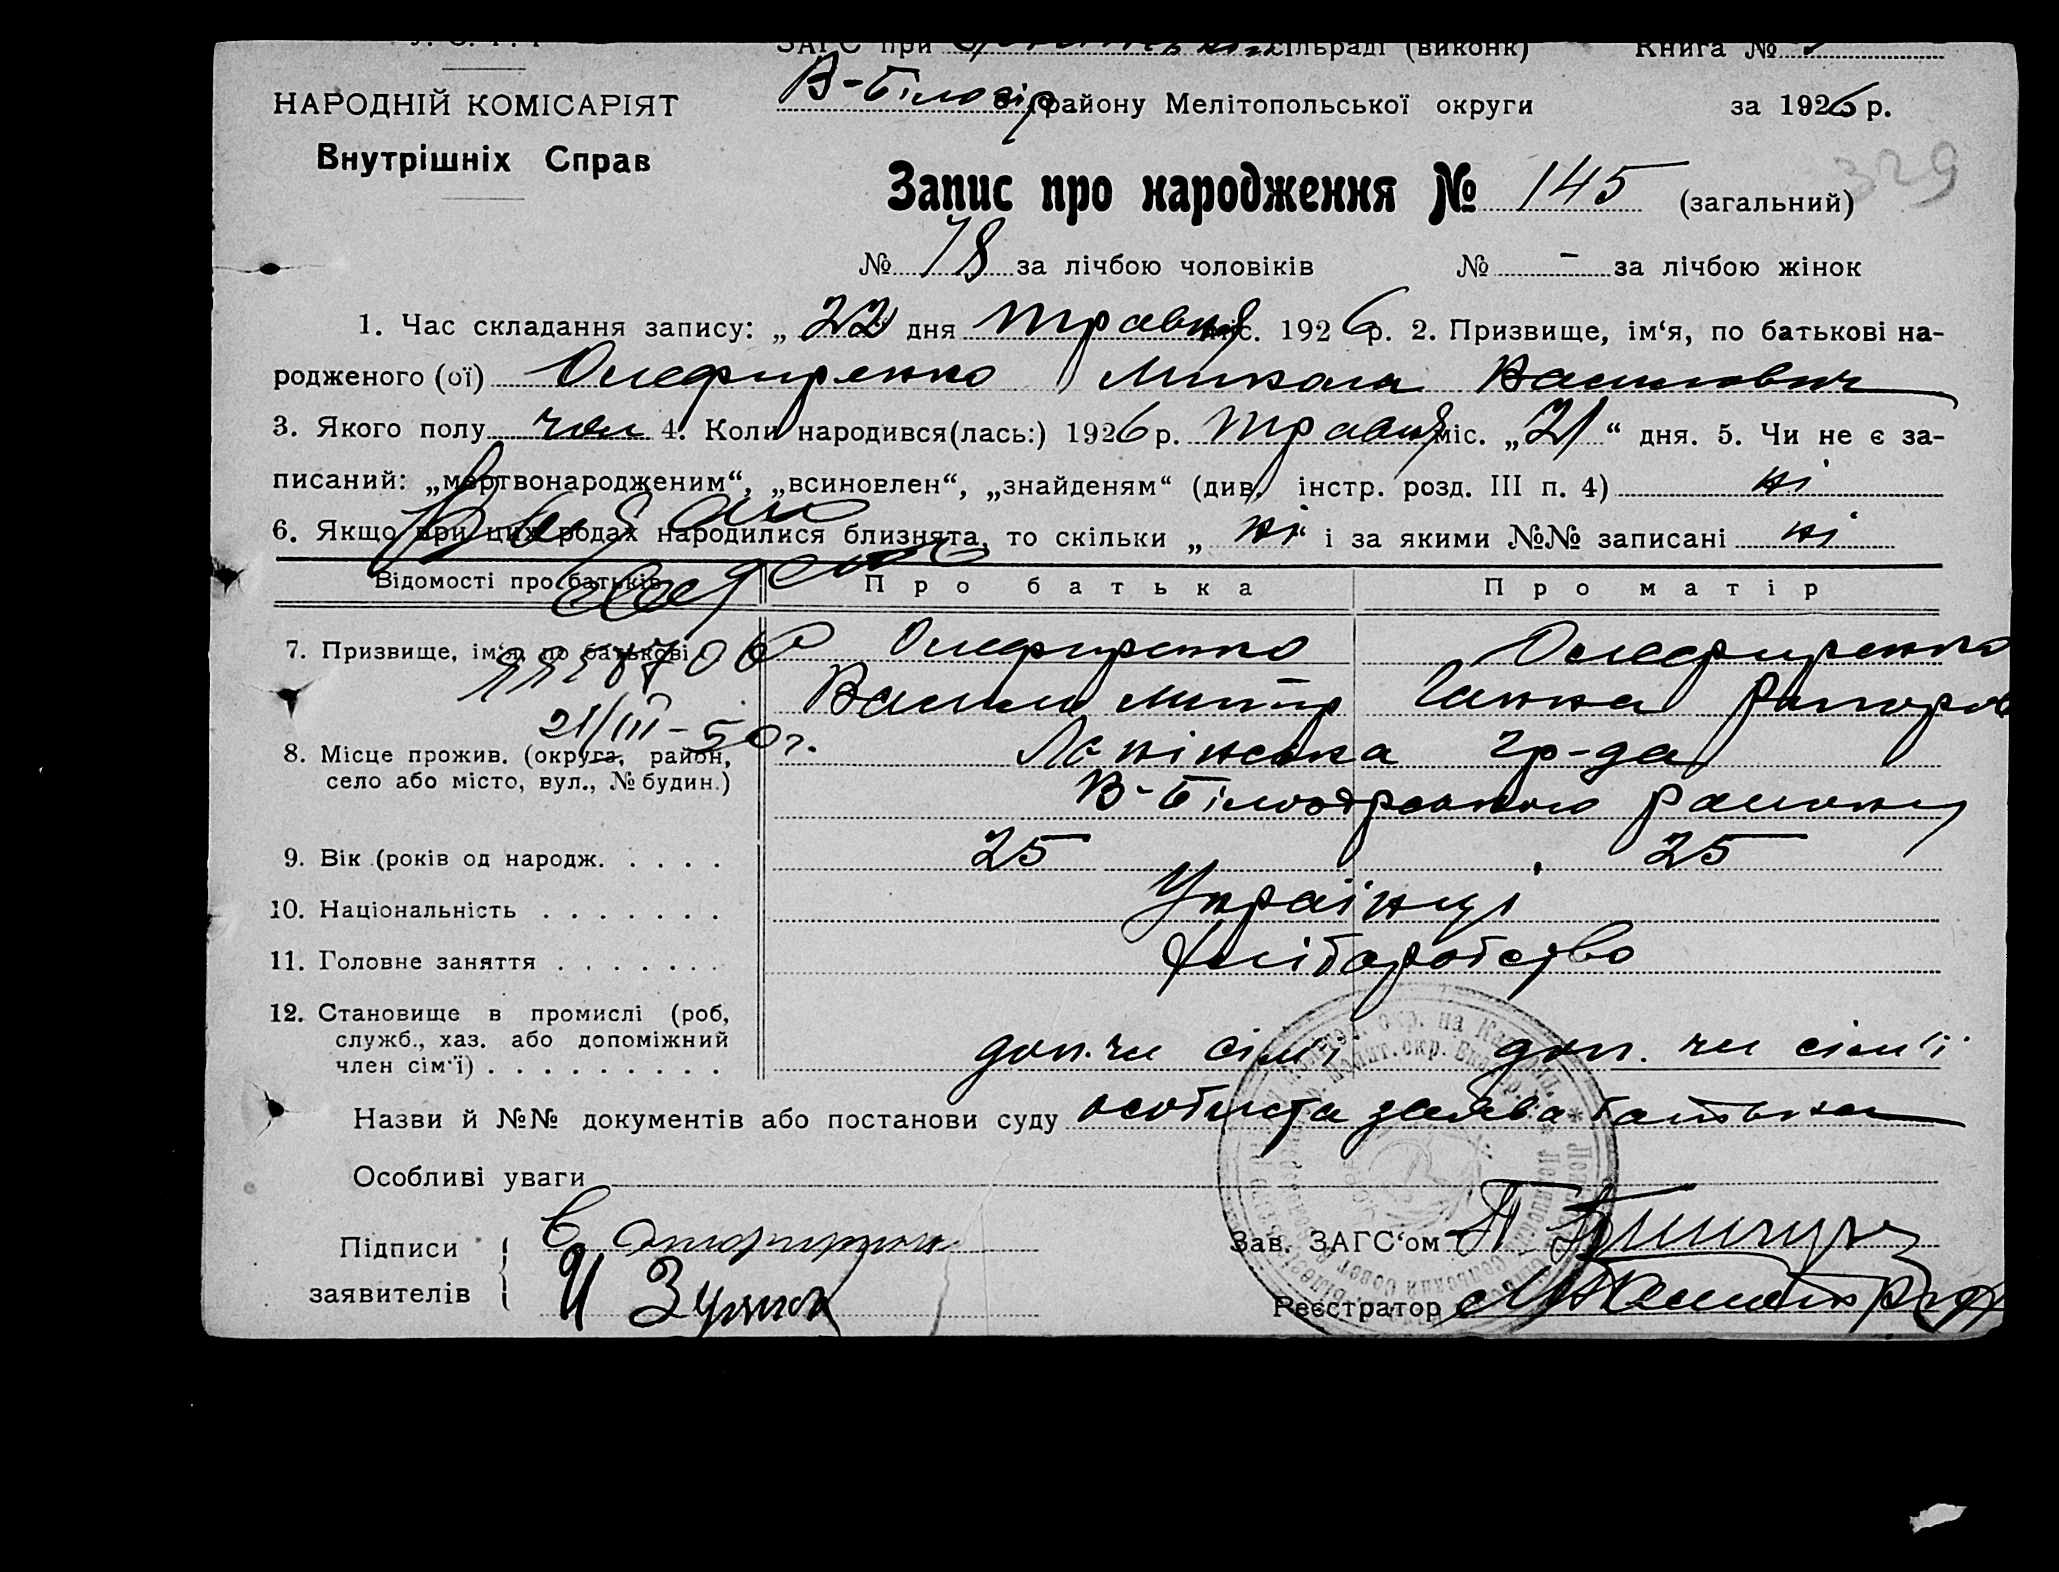 ЗАГС при сільраді (виконк) Книга №
НАРОДНІЙ КОМІСАРІЯТ
В-Білозір району Мелітопольської округи за 1926 р.
Внутрішніх Справ
329
Запис про народження № 145 (загальний)
№ 78 за лічбою чоловіків № - за лічбою жінок
1. Час складання запису: „22" дня травня міс. 1926 р. 2. Призвище, ім'я, по батькові на-
родженого (ої) Олефиренко Микола Василович
3. Якого полу чол 4. Коли народився(лась:) 1926 р. травня міс. „21" дня. 5. Чи не є за-
писаний: „мертвонародженим", „всиновлен", „знайденям" (див. інстр. розд. III п. 4) ні
6. Якщо при цих родах народилися близнята, то скільки „ні" і за якими №№ записані ні
Відомості про батьків Про батька Про матір
7. Призвище, ім'я, по батькові Олефиренко Олефиренко
Васил Ганна
21/III-50 г.
8. Місце прожив. (округа, район, Ленінська гр-да
село або місто, вул., № будин.) В-Білозірського району
9. Вік (років од народж. . . . . 25 25
10. Національність . . . . . . . Українці
11. Головне заняття . . . . . . . Хліборобство
12. Становище в промислі (роб,
служб., хаз. або допоміжний
член сім'ї) . . . . . . . . . доп. чл сім'ї доп. чл сім'ї
Назви й №№ документів або постанови суду особиста заява батька
Особливі уваги
Підписи Зав. ЗАГС'ом
заявителів И Реєстратор